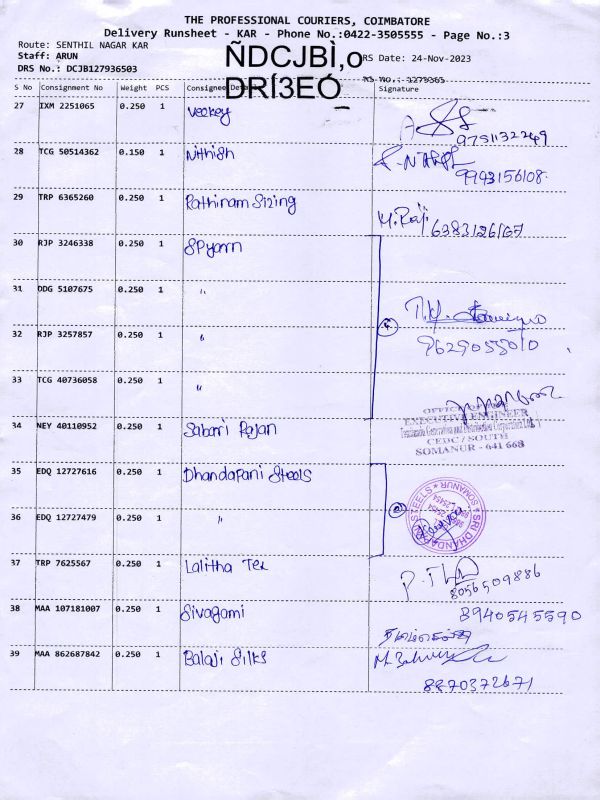 THE PROFESSIONAL COURIERS, COIMBATORE
Delivery Runsheet - KAR - Phone No.:0422-3505555 - Page No.:3
Route: SENTHIL NAGAR KAR
Staff: ARUN
ÑDCJBÌ,o
RS Date: 24-Nov-2023
DRS No.: DCJB127936503
DRÍ3EÓ_
S No Consignment No Weight PCS Consignee Details Signature
27 IXM 2251065 0.250 1 Veekey
9751132249
28 TCG 50514362 0.150 1 Nithish
9993156108
29 TRP 6365260 0.250 1 Rathinam Sizing M. Raji
30 RJP 3246338 0.250 1 SPyarn
31 DDG 5107675 0.250 1 "
32 RJP 3257857 0.250 1 "
9629055010
33 TCG 40736058 0.250 1 "
34 NEY 40110952 0.250 1 Sabari Rajan
OFFICE OF THE
EXECUTIVE ENGINEER
Tamilnadu Generation and Distribution Corporation Ltd.
CEDC / SOUTH
SOMANUR - 641 668
35 EDQ 12727616 0.250 1 Dhandapani Steels
SRI DHANDAPANI STEELS * SOMANUR *
36 EDQ 12727479 0.250 1 "
37 TRP 7625567 0.250 1 Lalitha Tex
8056509886
38 MAA 107181007 0.250 1 Sivagami 8940545590
39 MAA 862687842 0.250 1 Balaji Silks
8870372671